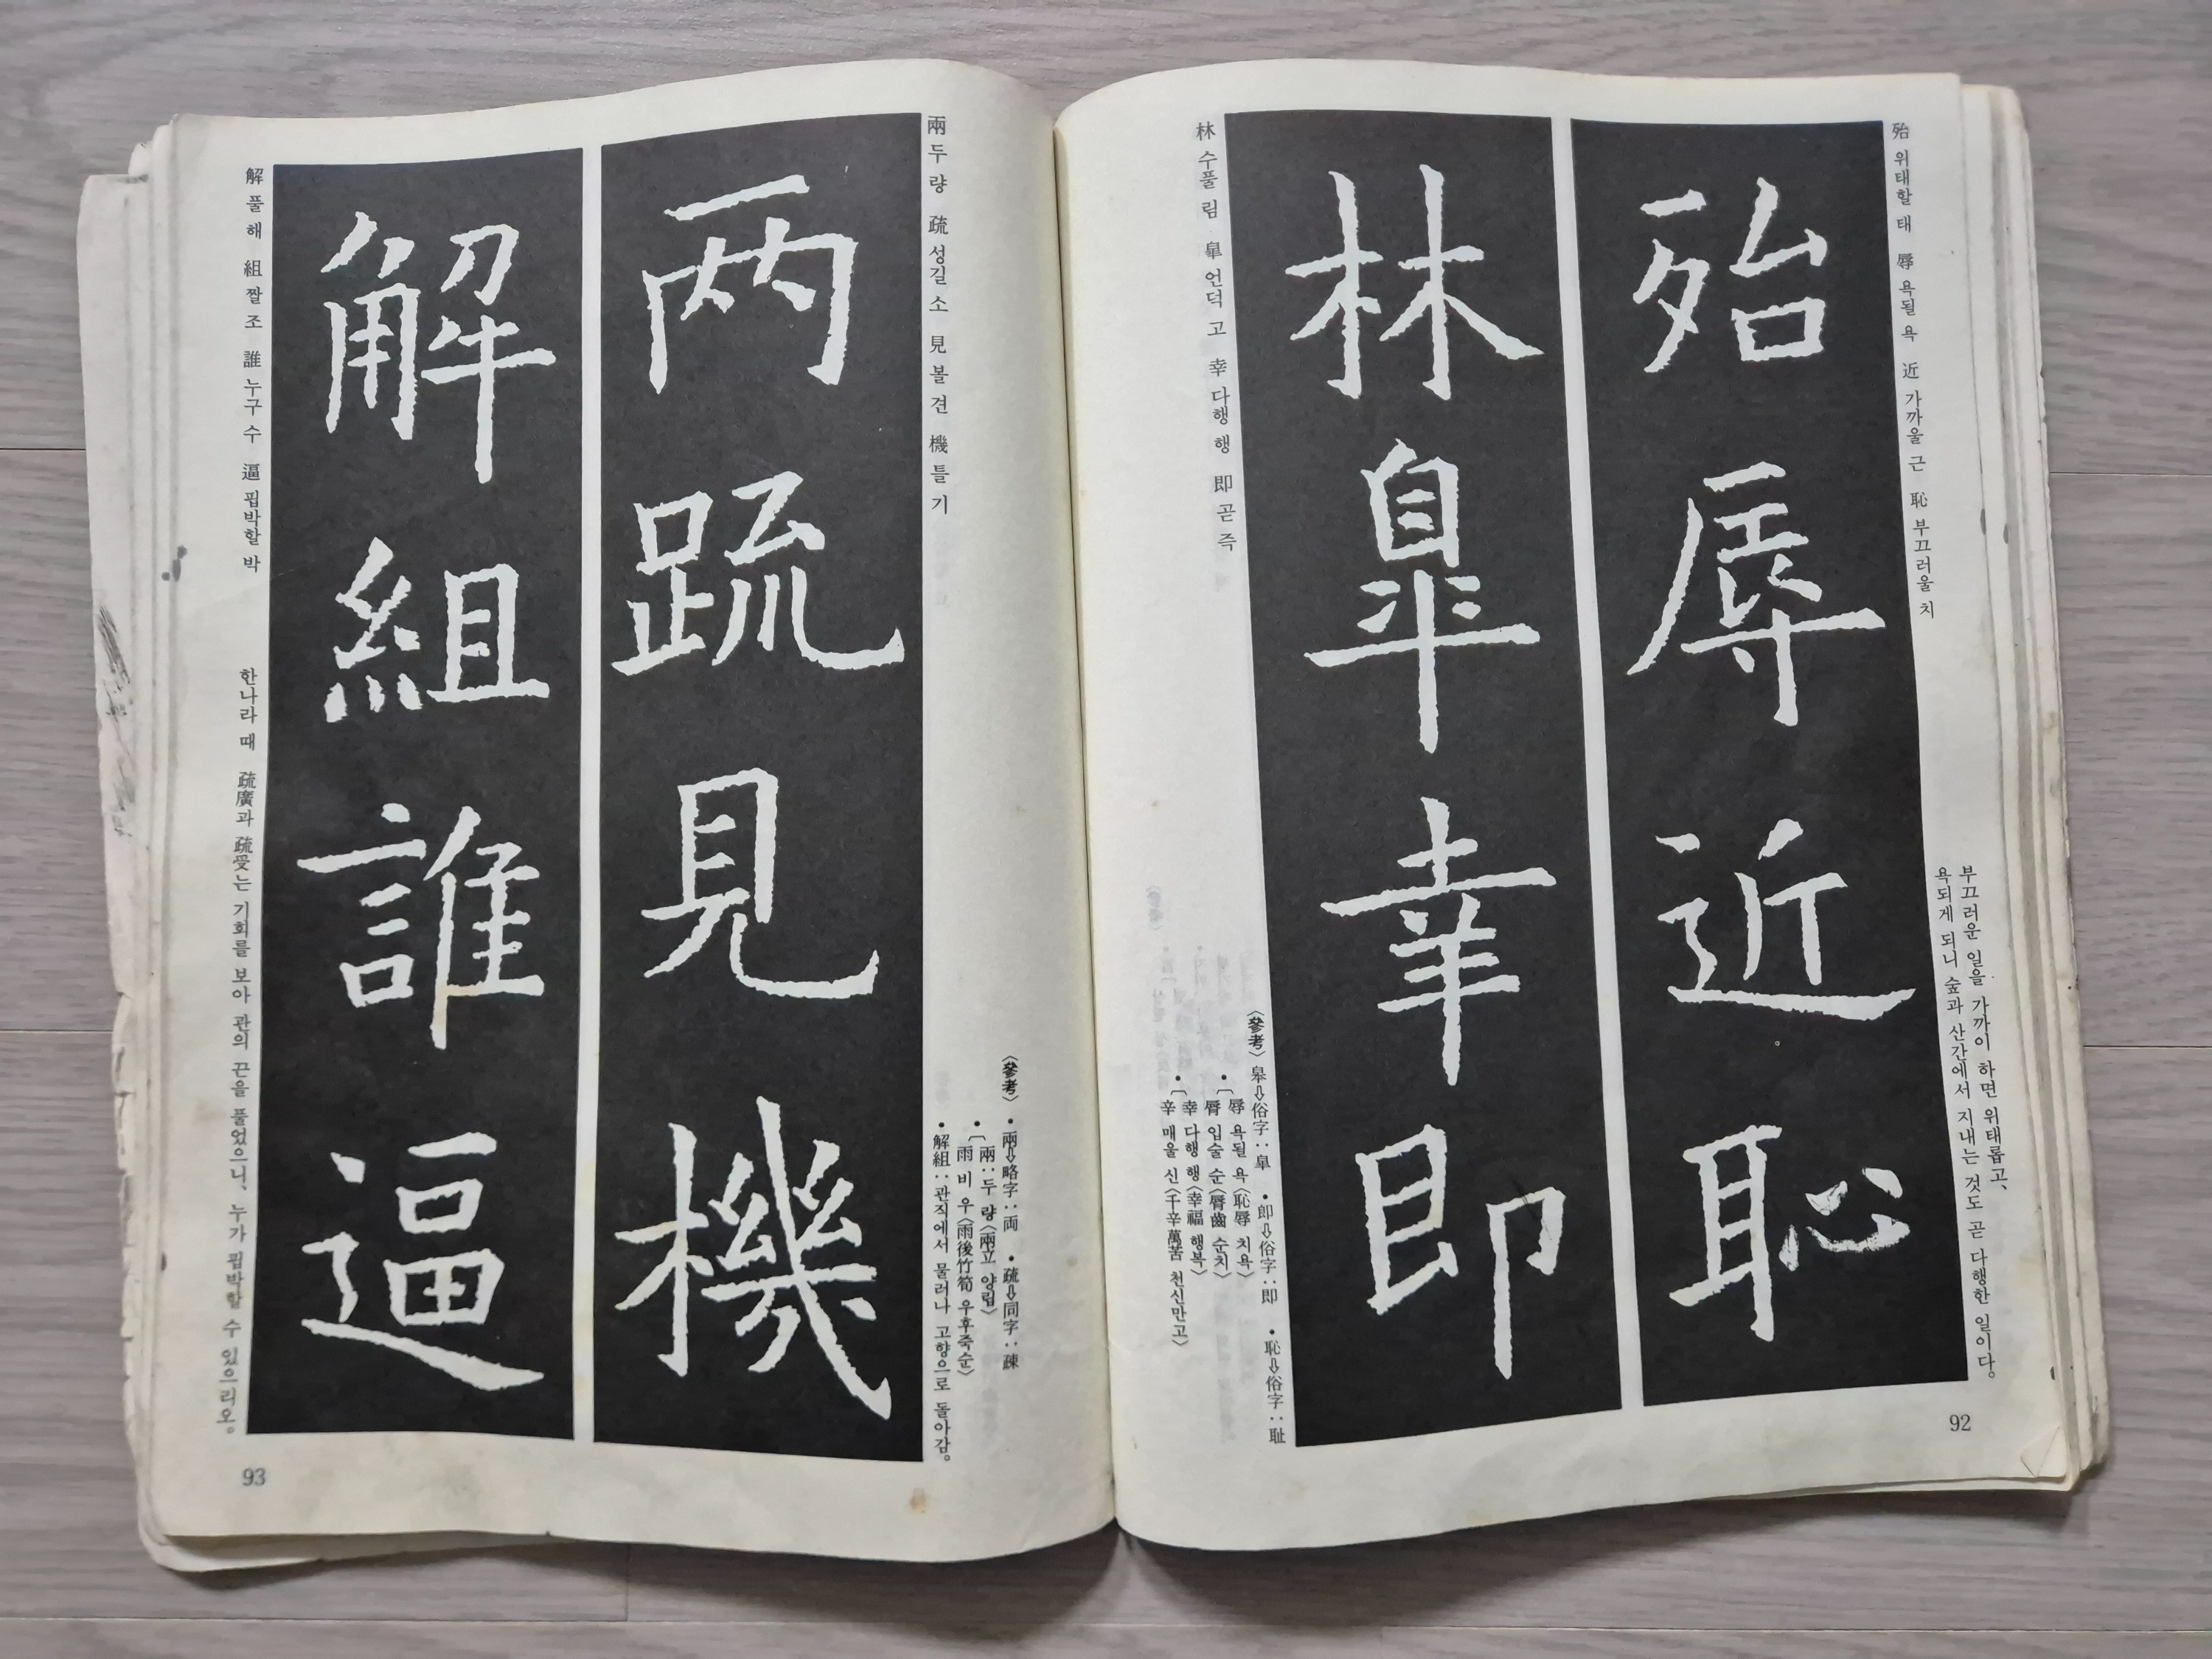 殆 위태할 태 辱 욕될 욕 近 가까울 근 恥 부끄러울 치
부끄러운 일을 가까이 하면 위태롭고、
욕되게 되니 숲과 산간에서 지내는 것도 곧 다행한 일이다。
殆辱近恥
林皐幸即
林 수풀 림 皐 언덕 고 幸 다행 행 即 곧 즉
〈參考〉 皋⇨俗字：皐 •即⇨俗字：即 •恥⇨俗字：耻
•〔辱 욕될 욕〈恥辱 치욕〉
脣 입술 순〈脣齒 순치〉
•〔幸 다행 행〈幸福 행복〉
辛 매울 신〈千辛萬苦 천신만고〉
92
〈參考〉 •兩⇨略字：両 •疏⇨同字：疎
•〔兩：두 량〈兩立 양립〉
雨 비 우〈雨後竹筍 우후죽순〉
•解組：관직에서 물러나 고향으로 돌아감。
兩 두 량 疏 성길 소 見 볼 견 機 틀 기
兩疏見機
解組誰逼
解 풀 해 組 짤 조 誰 누구 수 逼 핍박할 박
한나라 때 疏廣과 疏受는 기회를 보아 관의 끈을 풀었으니、누가 핍박할 수 있으리오。
93